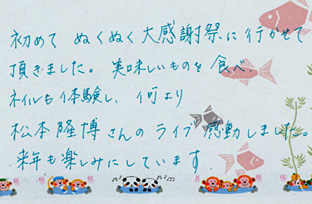 初めて ぬくぬく大感謝祭に行かせて
頂きました。美味しいものを食べ、
ネイルも体験し、何より
松本隆博さんのライブ感動しました。
来年も楽しみにしています